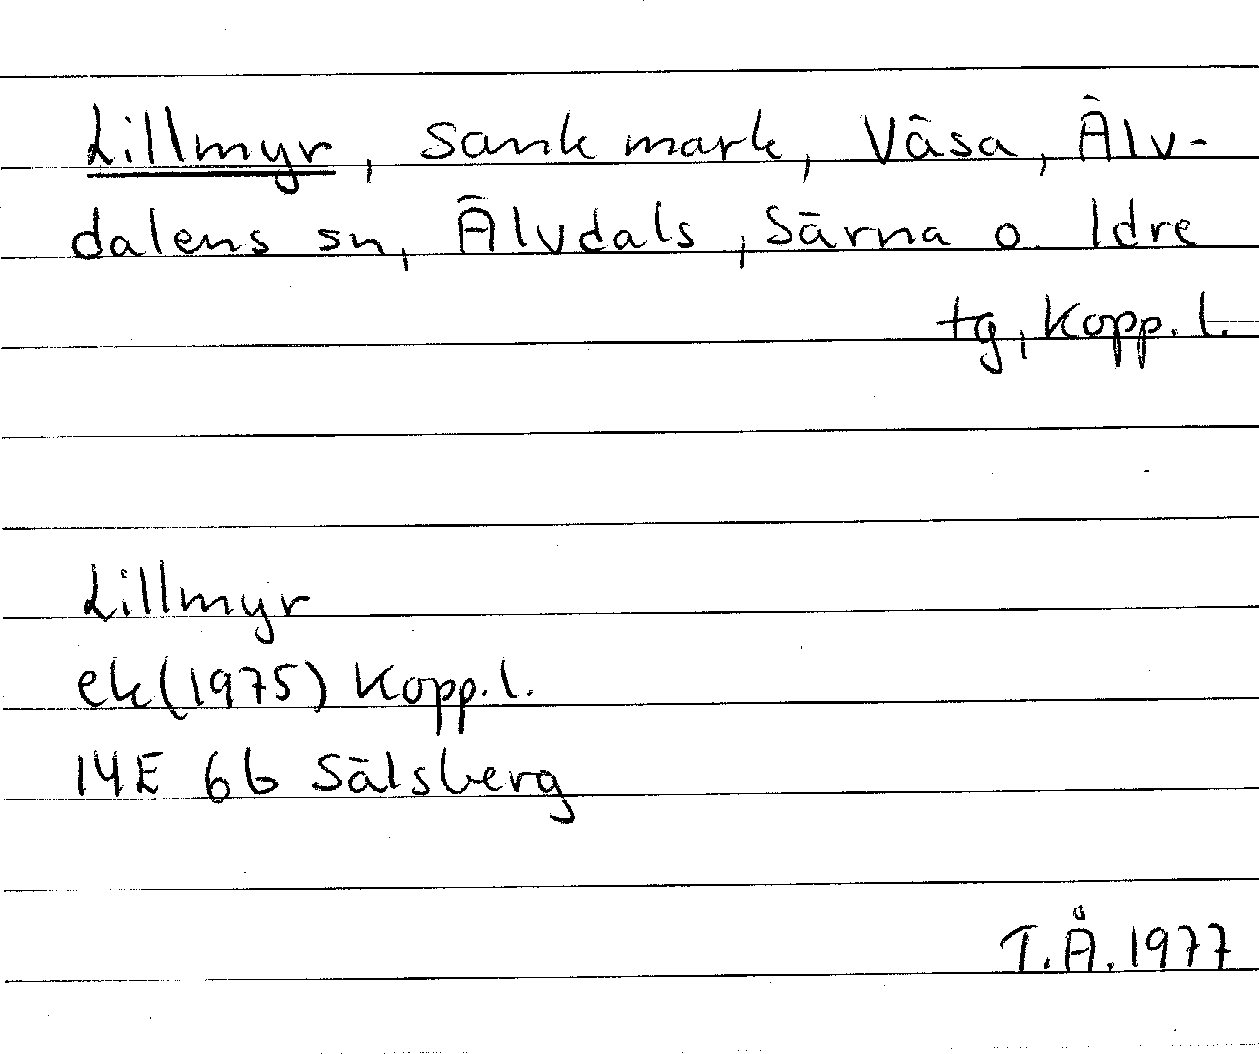 Lillmyr, sank mark, Väsa, Älv-
dalens sn, Älvdals, Särna o. Idre
tg, Kopp. l.
Lillmyr
ek (1975) Kopp. l.
14E 6b Sälsberg
T.Å. 1977